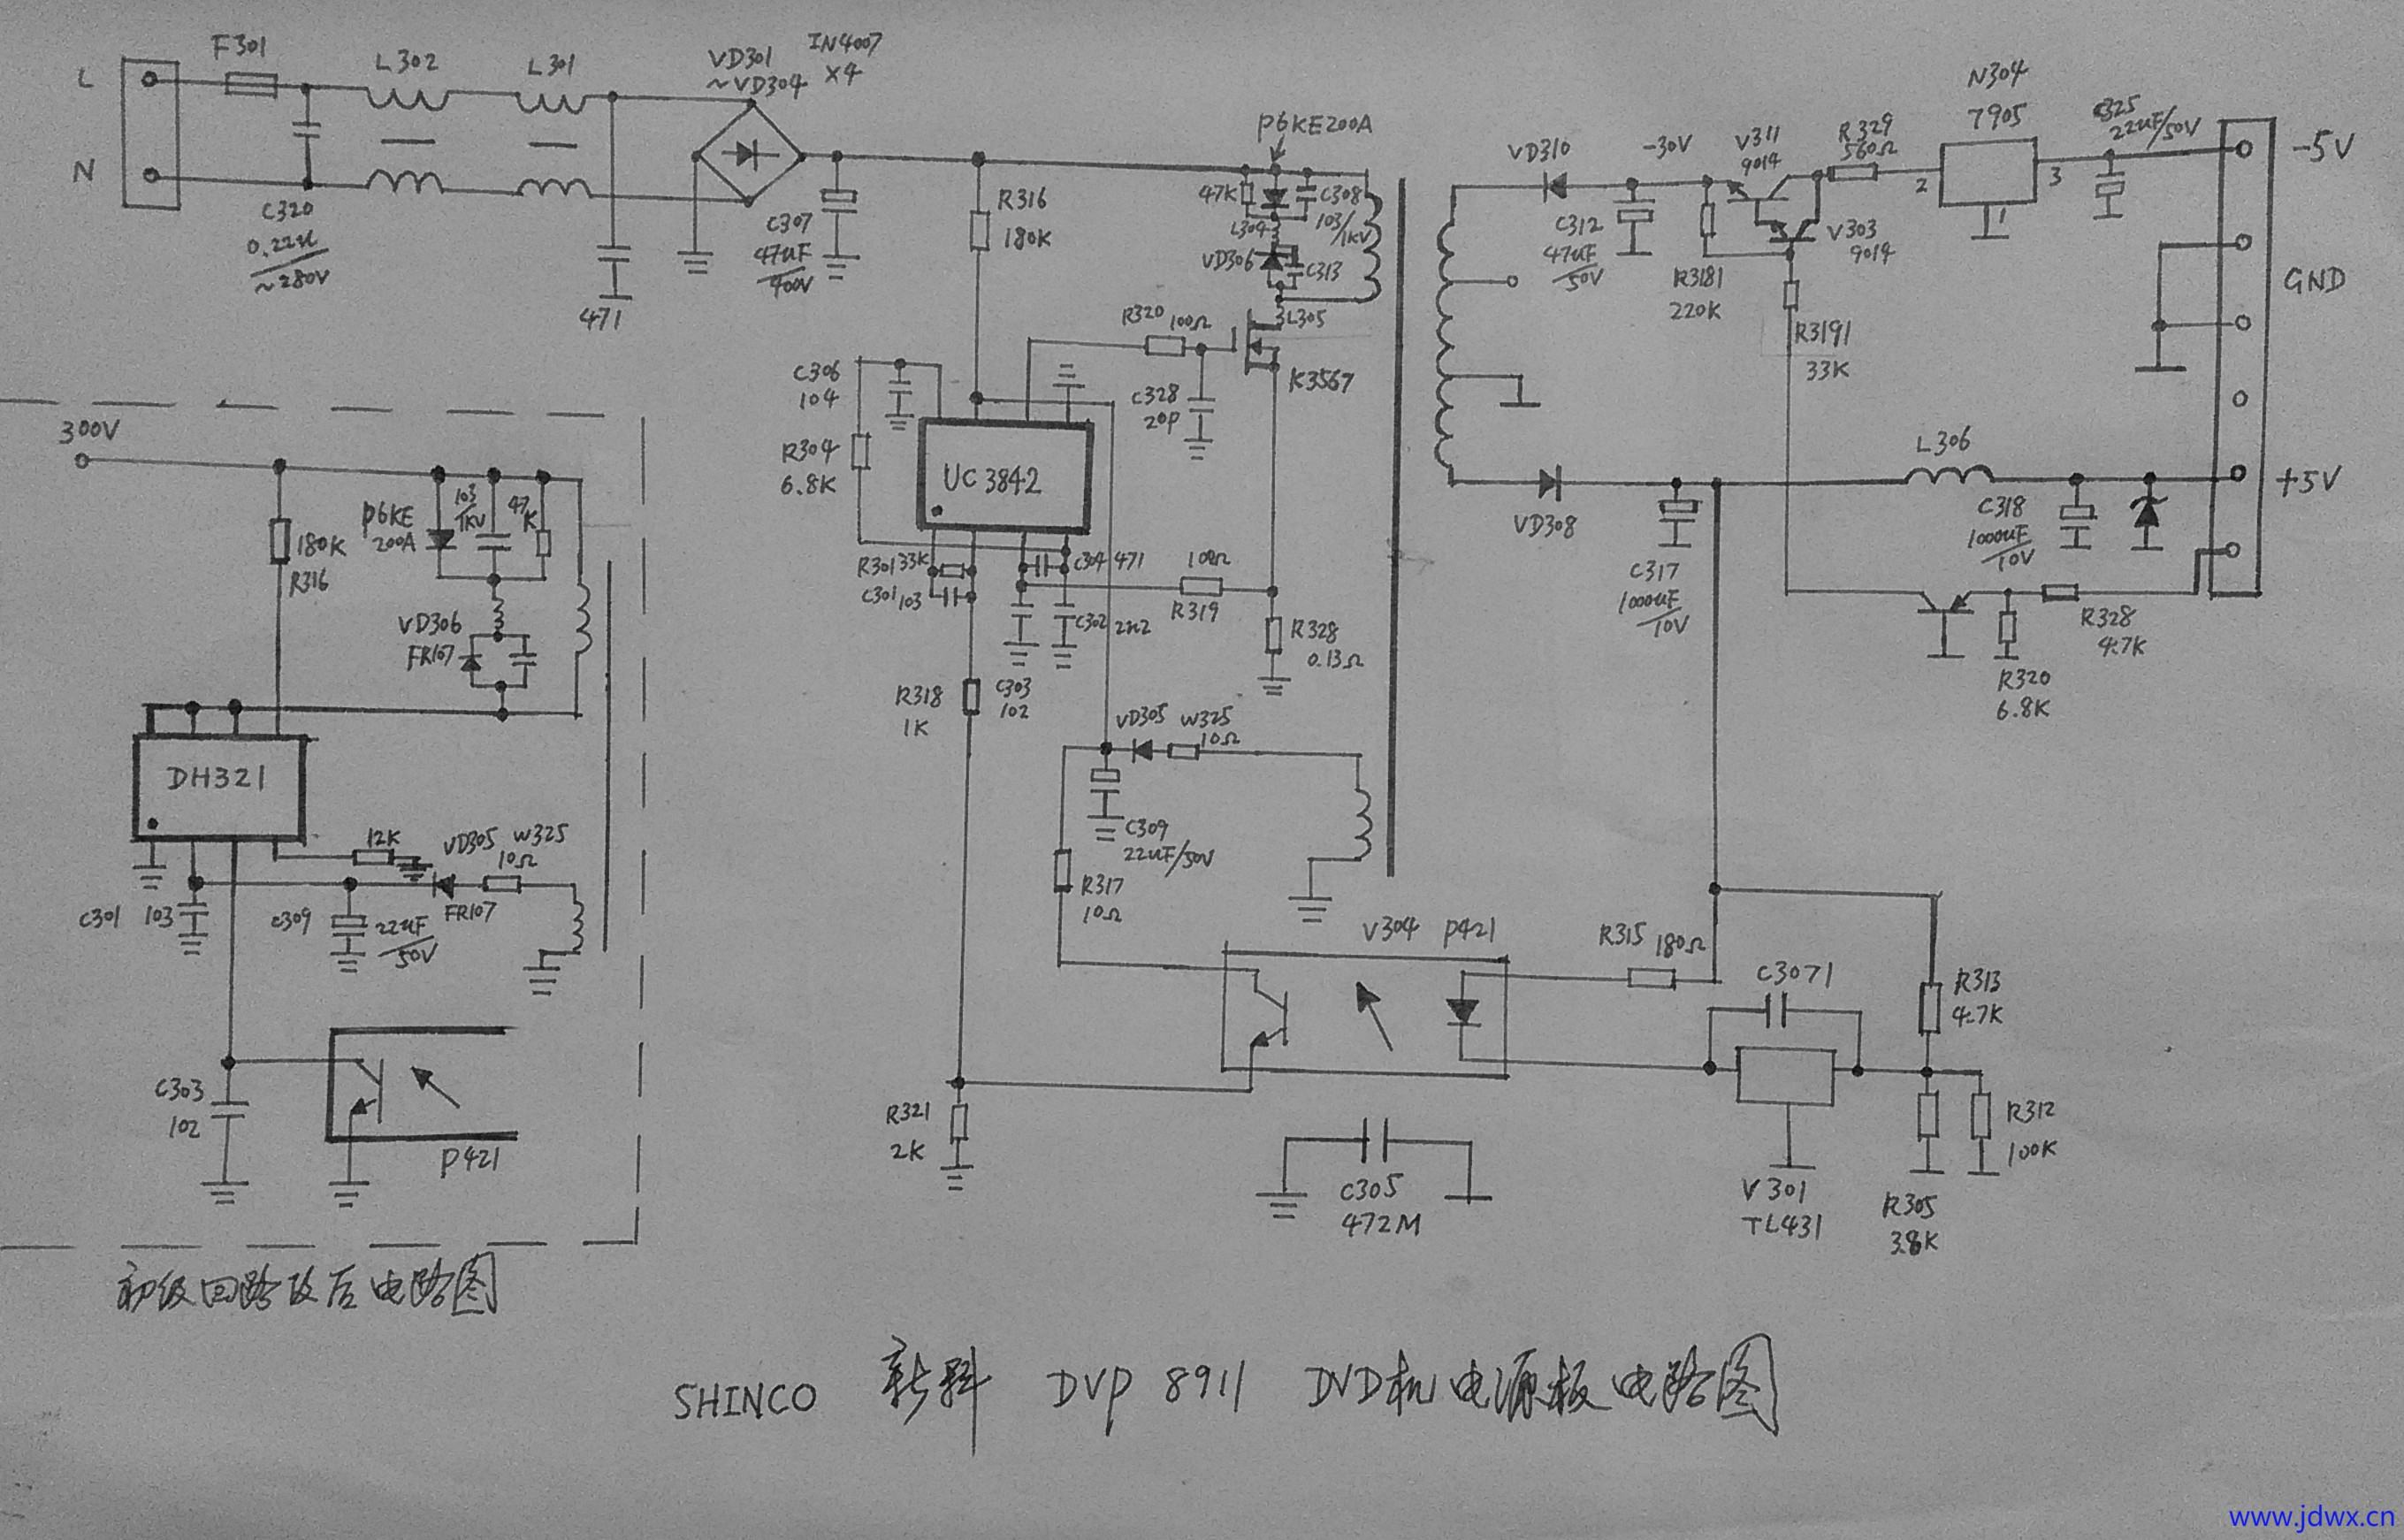 F301
L302
L301
VD301
~VD304
IN4007
X4
L
N
C320
0.22u
~280V
471
C307
47uF
400V
R316
180K
P6KE200A
47K
C308
103/
1KV
L304
VD306
C313
L305
K3567
R320 100Ω
C328
20P
C306
104
R304
6.8K
UC3842
R301 33K
C301 103
C304 471
C302 2n2
R319
R328
0.13Ω
R318
1K
C303
102
VD305 W325
10Ω
C309
22uF/50V
R317
10Ω
V304 P421
R315 180Ω
C3071
R313
4.7K
R321
2K
C305
472M
V301
TL431
R305
3.8K
R312
100K
VD310
-30V
V311
9014
R329
560Ω
N304
7905
2
3
1
C325
22uF/50V
-5V
C312
47uF
50V
R3181
220K
V303
9014
R3191
33K
GND
L306
+5V
VD308
C317
1000uF
10V
C318
1000uF
10V
R328
4.7K
R320
6.8K
300V
P6KE
200A
103
1KV
47
K
180K
R316
VD306
FR107
DH321
12K
VD305 W325
10Ω
FR107
C301 103
C309
22uF
50V
C303
102
P421
初级回路改后电路图
SHINCO 新科 DVP 8911 DVD机电源板电路图
www.jdwx.cn